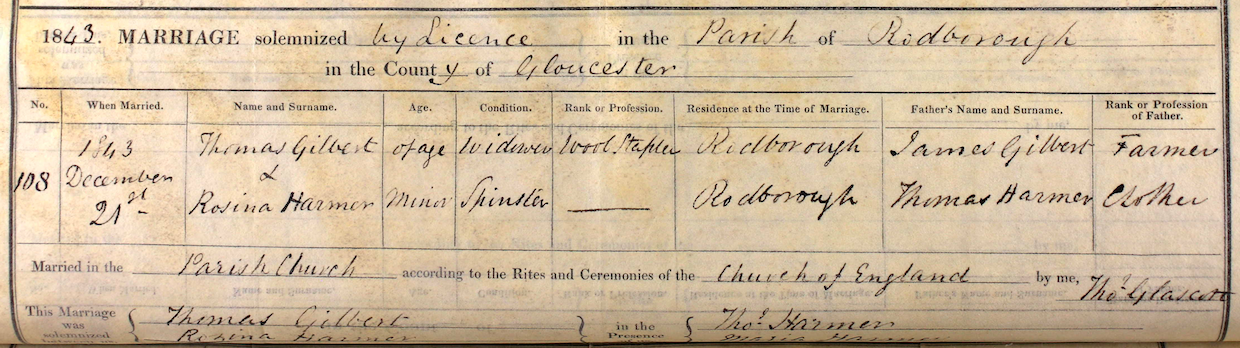 1843. MARRIAGE solemnized by Licence in the Parish of Rodborough
in the County of Gloucester
No. When Married. Name and Surname. Age. Condition. Rank or Profession. Residence at the Time of Marriage. Father's Name and Surname. Rank or Profession of Father.
1843 Thomas Gilbert of age Widower Wool Stapler Rodborough James Gilbert Farmer
108 December &
21st Rosina Harmer Minor Spinster Rodborough Thomas Harmer Clothier
Married in the Parish Church according to the Rites and Ceremonies of the Church of England by me, Thos. Glascott
This Marriage was solemnized between us { Thomas Gilbert } in the Presence { Thos. Harmer
Rosina Harmer Maria Harmer